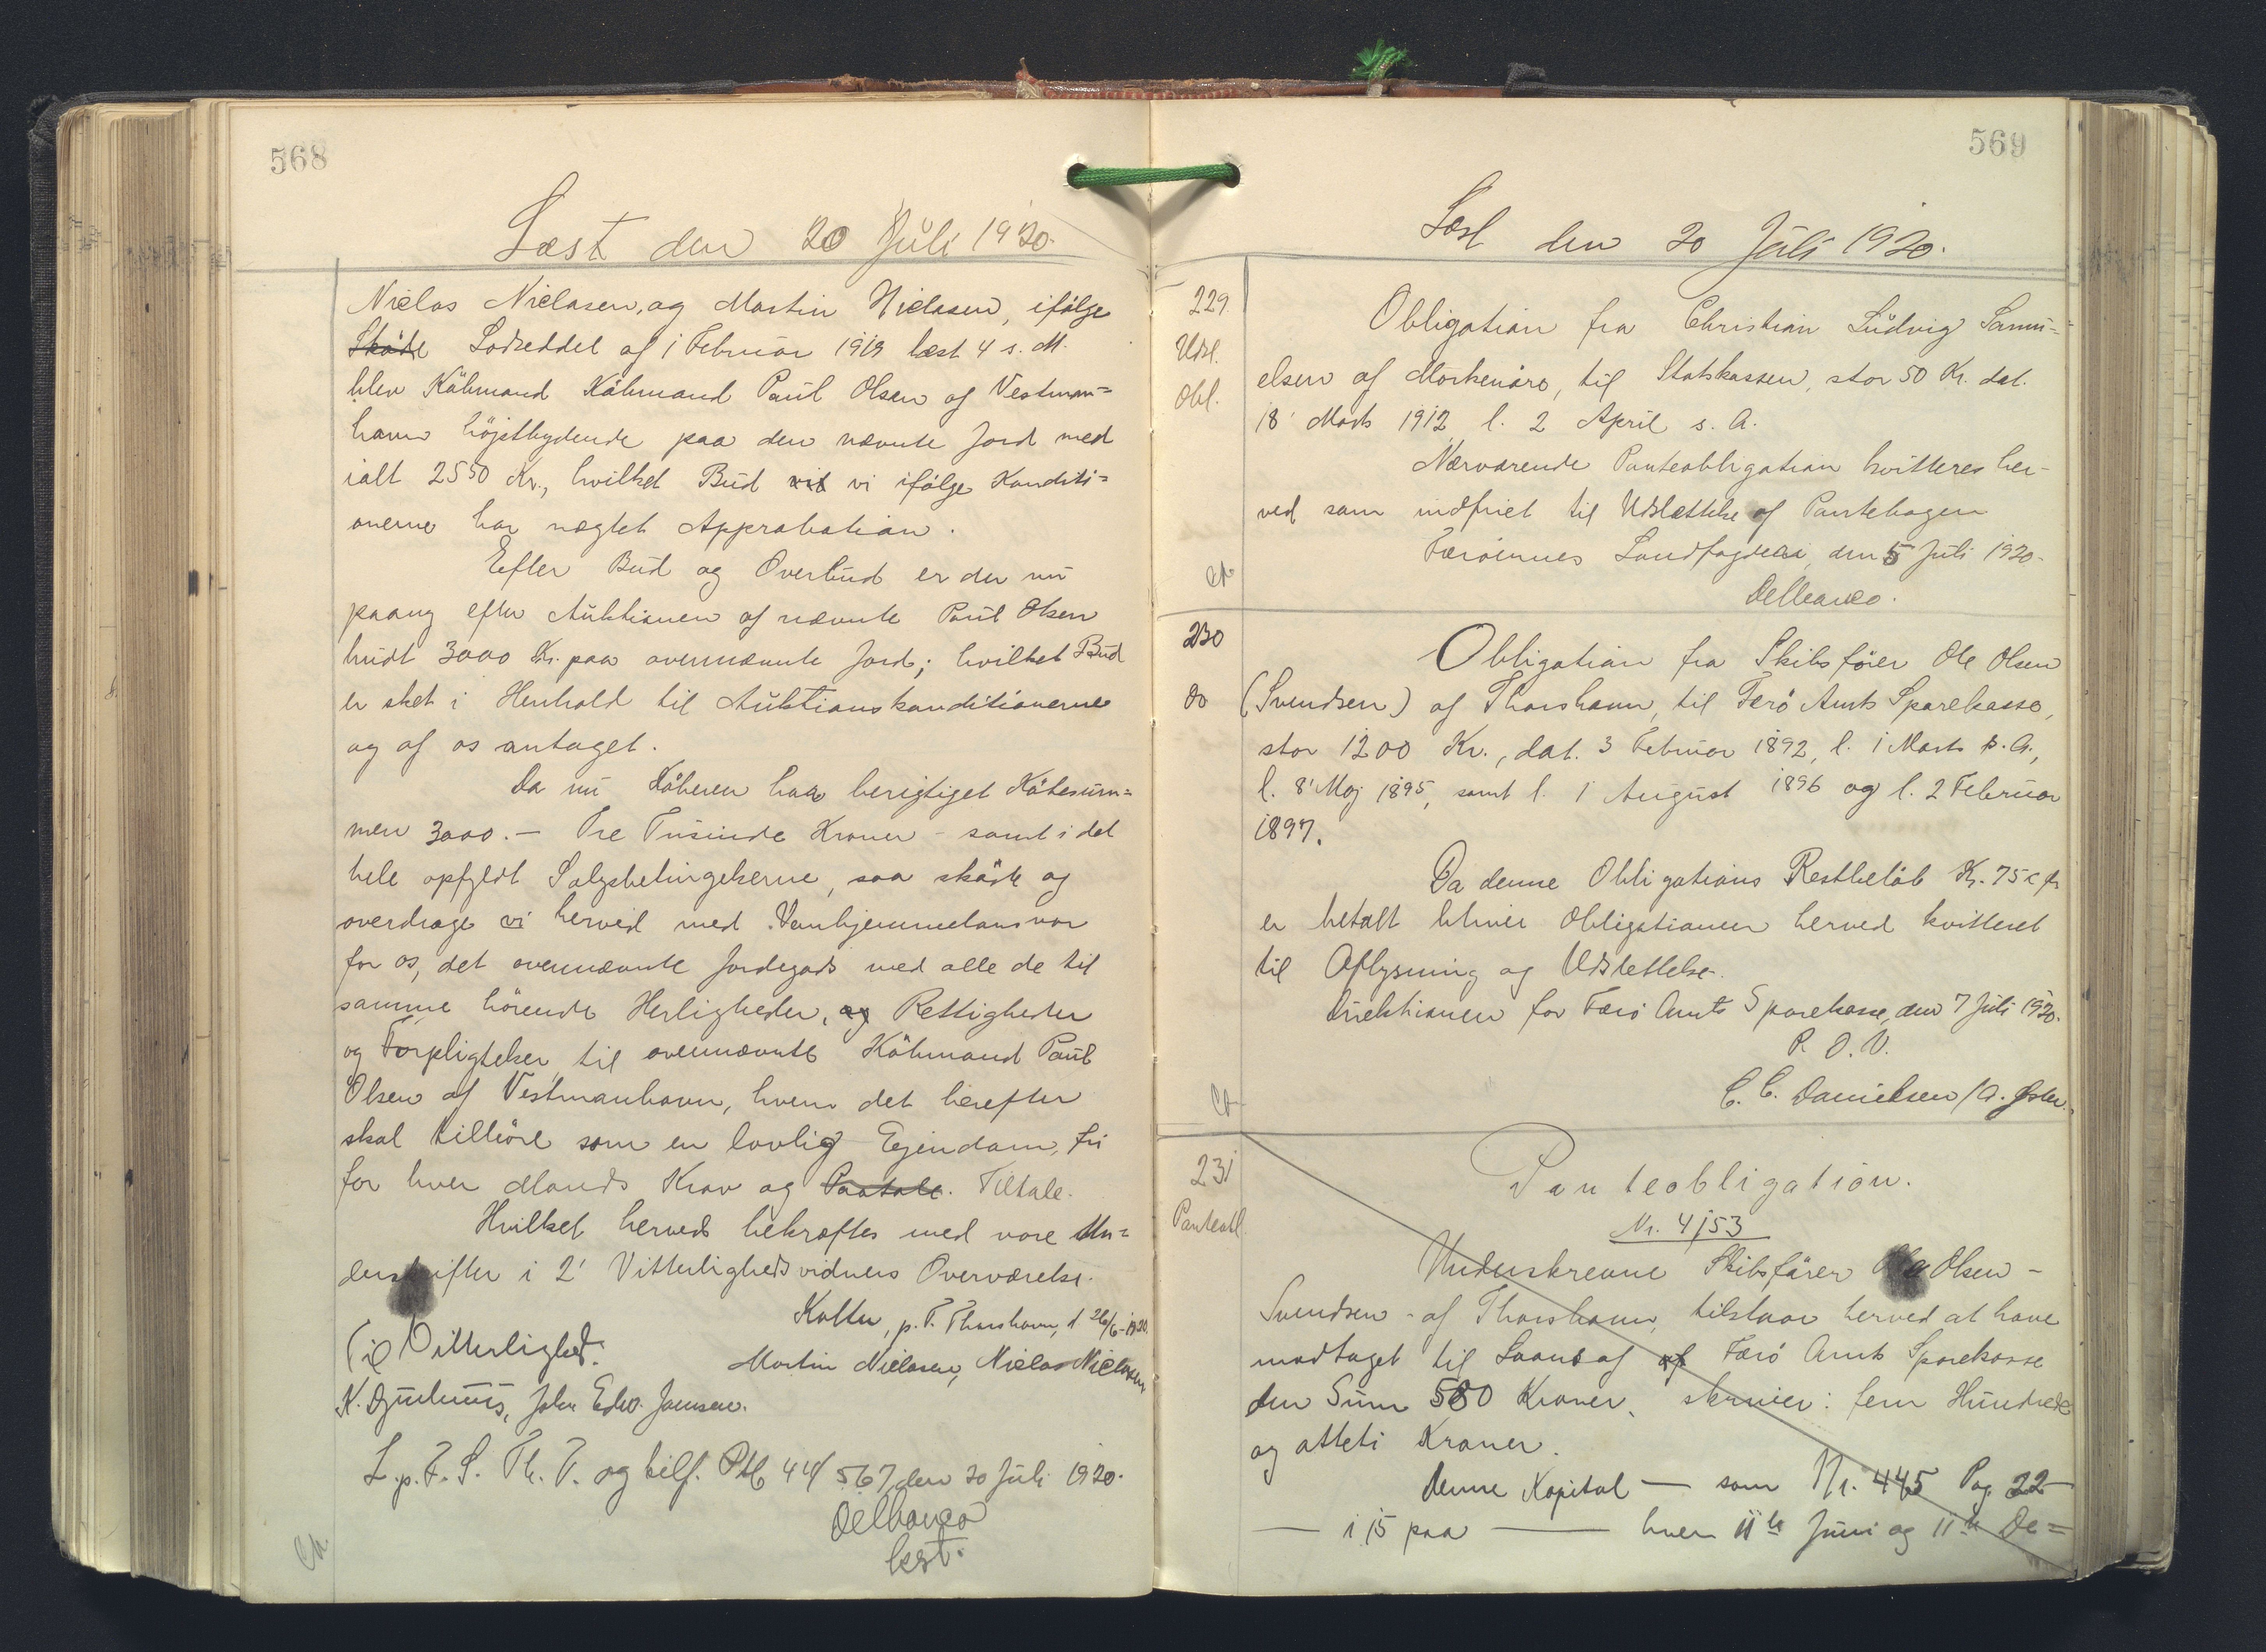 568
Læst den 20 Juli 1920.
Niclas Niclasen, og Martin Niclasen, ifølge
Skøde Lodseddel af 1 Februar 1919 læst 4 s. M.
blev Købmand Købmand Paul Olsen af Vestman=
havn højstbydende paa den nævnte Jord med
ialt 2550 Kr., hvilket Bud vi ifølge Konditi=
onerne har nægtet Approbation.
Efter Bud og Overbud er der nu
paany efter Auktionen af nævnte Paul Olsen
budt 3000 Kr. paa ovennævnte Jord; hvilket Bud
er sket i Henhold til Auktionskonditionerne
og af os antaget.
Da nu Køberen har berigtiget Købesum=
men 3000.— Tre Tusinde Kroner – samt i det
hele opfyldt Salgsbetingelserne, saa skøde og
overdrage vi herved med Vanhjemmelansvar
for os, det ovennævnte Jordegods med alle de til
samme hörende Herligheder, og Rettigheder
og Forpligtelser til ovennævnte Köbmand Paul
Olsen af Vestmanhavn, hvem det herefter
skal tilhöre som en lovlig Ejendom, fri
for hver Mands Krav og Paatale. Tiltale.
Hvilket herved bekræftes med vore Un=
derskrifter i 2' Vitterlighedsvidners Overværelse.
Kolter, p. T. Thorshavn, d. 26/6-1920.
Til Vitterlighed:
Martin Niclasen, Niclas Niclasen
K. Djurhuus, John Edw. Jensen.
L. p. F. S. Th. T. og tilf. Ptb 44/567 den 20 Juli 1920.
Delbanco
kst.
569
Læst den 20 Juli 1920.
229.
Udsl.
Obl.
Obligation fra Christian Ludvig Samu=
elsen af Morkenäre, til Statskassen, stor 50 Kr. dat.
18' Marts 1912 l. 2 April s. A.
Nærværende Panteobligation kvitteres her-
ved som indfriet til Udslettelse af Pantebogen
Færöernes Landfogderi, den 5 Juli 1920.
Delbanco.
230
do
Obligation fra Skibsförer Ole Olsen
(Svendsen) af Thorshavn, til Færö Amts Sparekasse,
stor 1200 Kr., dat. 3 Februar 1892, l. 1 Marts s. A.,
l. 8' Maj 1895, samt l. 1 August 1896 og l. 2 Februar
1897.
Da denne Obligations Restbelöb Kr. 75
er betalt bliver Obligationen herved kvitteret
til Aflysning og Udslettelse.
Direktionen for Færö Amts Sparekasse, den 7 Juli 1920.
P. D. V.
C. C. Danielsen /A.
231
Panteobl.
Panteobligation.
Nr. 4153
Underskrevne Skibsförer Ole Olsen –
Svendsen – af Thorshavn, tilstaar herved at have
modtaget til Laans af af Færö Amts Sparekasse
den Sum 580 Kroner, skriver: fem Hundrede
og otteti Kroner.
Denne Kapital — som Nr. 445 Pag. 22
— i 15 paa — hver 11te Juni og 11te De=